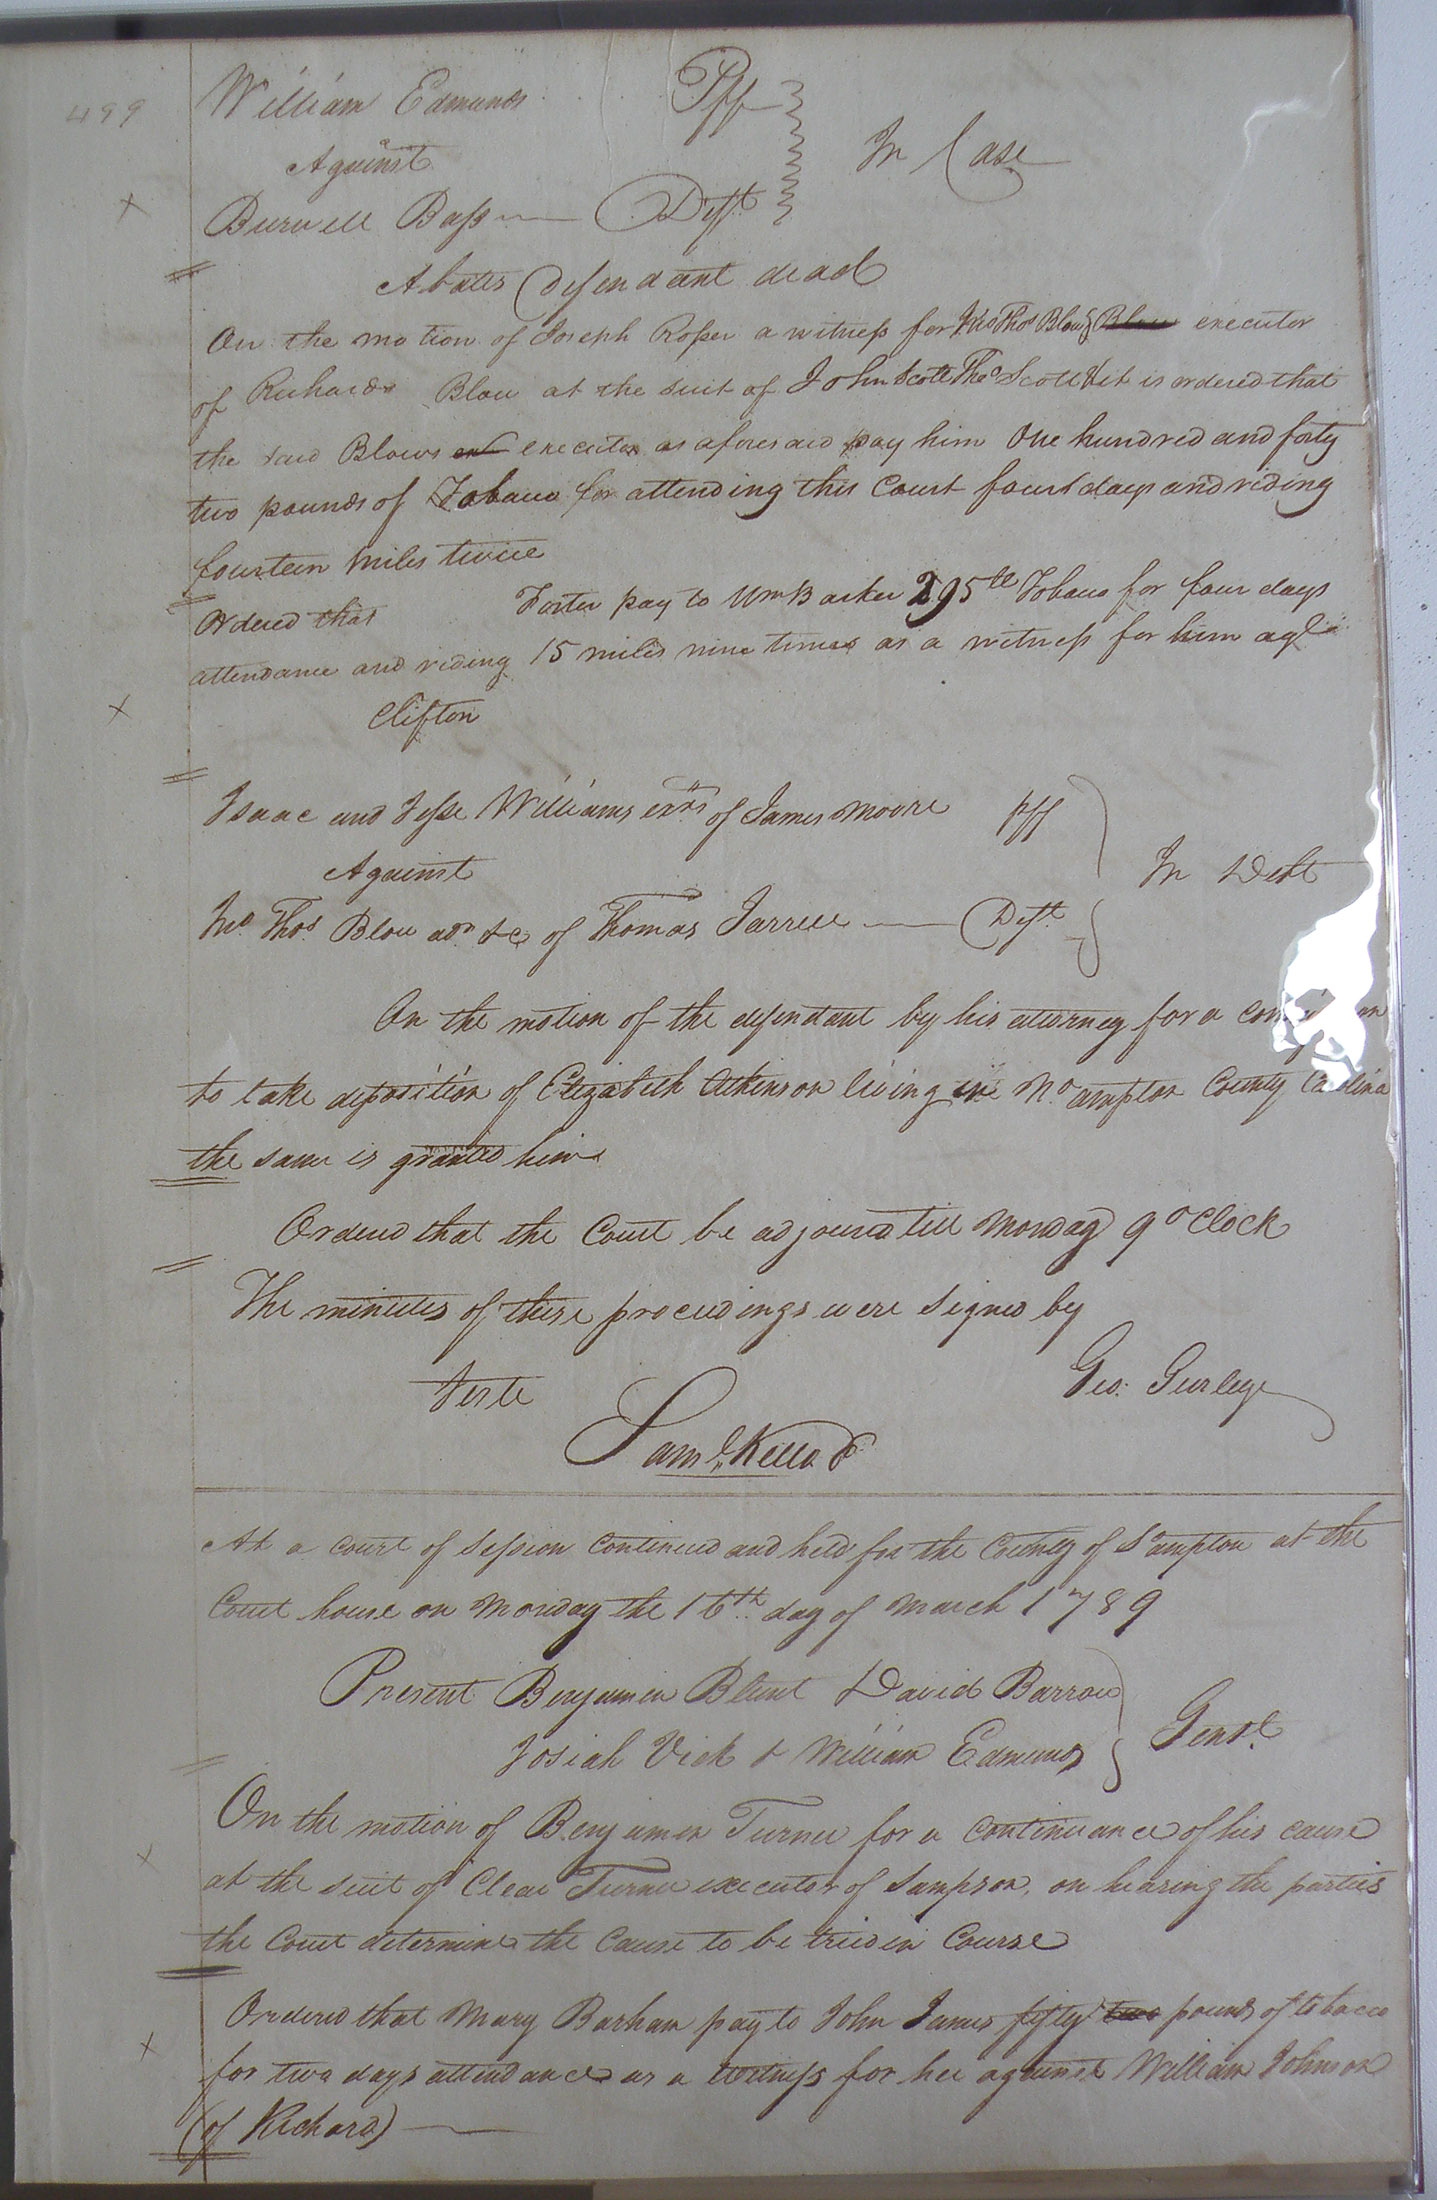 499
William Edmunds Plf
Against
In Case
Burwell Bass Deft
Abates Defendant dead
On the motion of Joseph Roper a witness for Jno Thos Blow & Blow executor
of Richard Blow at the suit of John Scott Thos Scott it is ordered that
the said Blows executor as aforesaid pay him One hundred and forty
two pounds of Tobacco for attending this Court four days and riding
fourteen Miles twice
Ordered that Foster pay to Wm Barker 295 lb Tobacco for four days
attendance and riding 15 miles nine times as a witness for him agt
Clifton
Isaac and Jesse Williams exrs of James Moore plff
Against
In Debt
Jno Thos Blow adr &c of Thomas Jarrell Deft
On the motion of the defendant by his attorney for a
to take deposition of Elizabeth Atkinson living in No ampton County Carolina
the same is granted him
Ordered that the Court be adjourned till Monday 9 oClock
The minutes of these proceedings were signed by
Teste Geo: Gurley
Saml Kello
At a Court of Session Continued and held for the County of S'ampton at the
Court house on Monday the 16th day of March 1789
Present Benjamin Blunt David Barrow
Josiah Vick & William Edmunds Gent
On the motion of Benjamin Turner for a Continuance of his cause
at the suit of Turner executor of Sampson, on hearing the parties
the Court determine the Cause to be tried in Course
Ordered that Mary Barham pay to John James fifty two pounds of tobacco
for two days attendance as a witness for her against William Johnson
(of Richard)